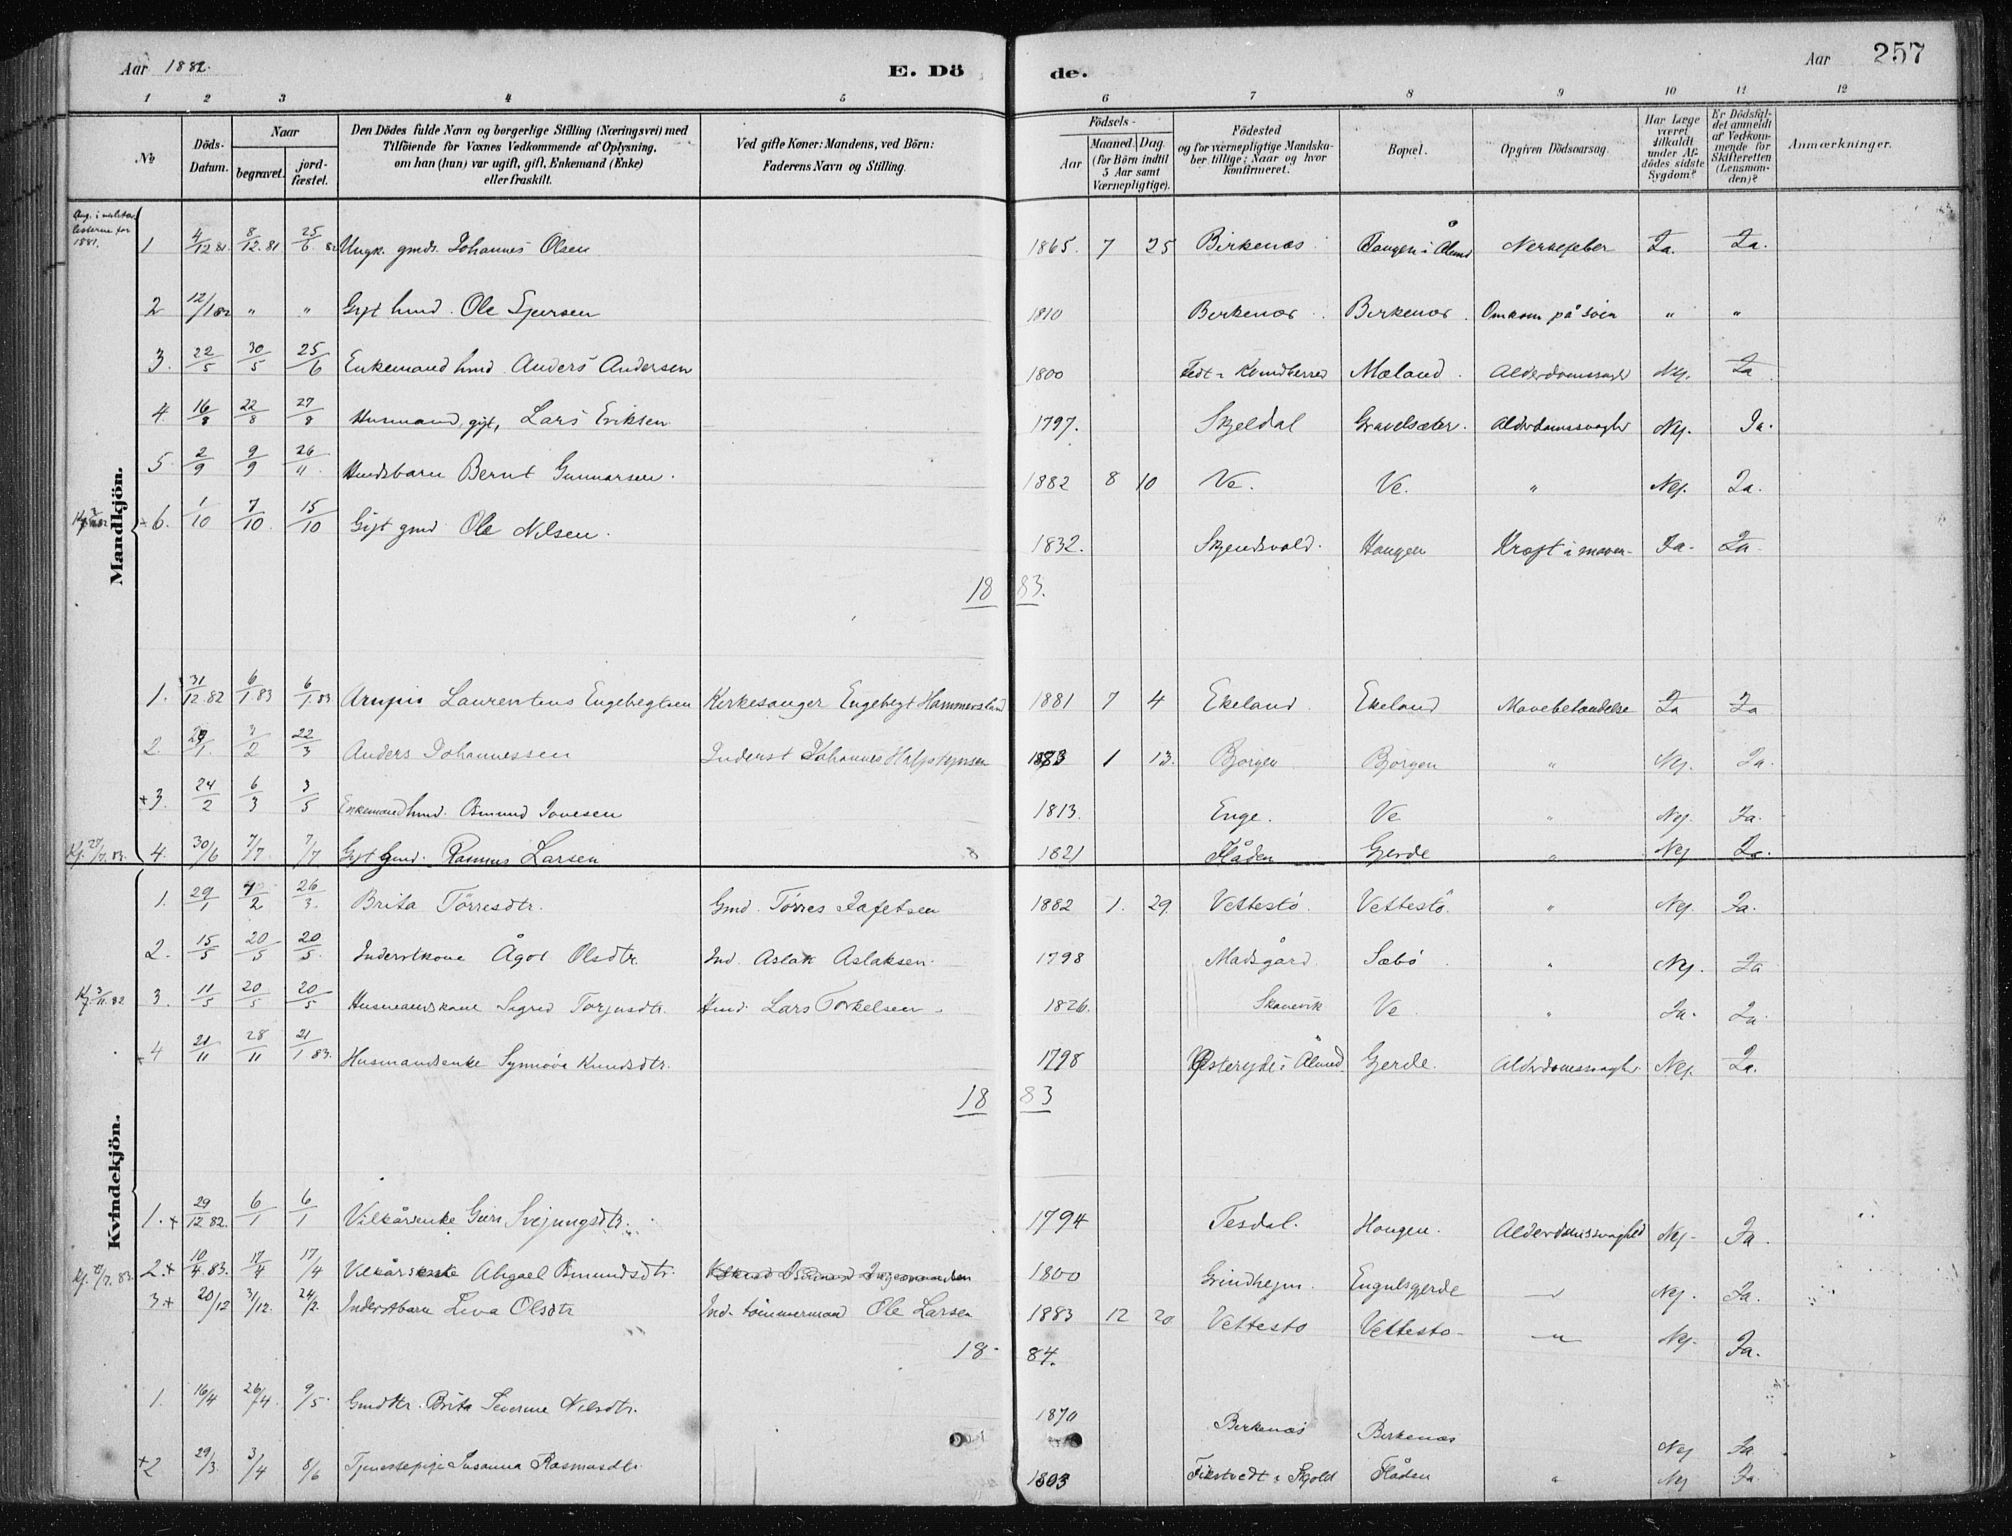 Aar 1882. E. Dö de. Aar 257
1 2 3 4 5 6 7 8 9 10 11 12
No Döds-Datum. Naar begravet. jord-fæstet. Den Dödes fulde Navn og borgerlige Stilling (Næringsvei) med Tilföiende for Voxnes Vedkommende af Oplysning, om han (hun) var ugift, gift, Enkemand (Enke) eller fraskilt. Ved gifte Koner: Mandens, ved Börn: Faderens Navn og Stilling. Födsels- Aar Maaned. Dag. (for Börn indtil 5 Aar samt Værnepligtige). Födested og for værnepligtige Mandskaber tillige: Naar og hvor konfirmeret. Bopæl. Opgiven Dödsaarsag. Har Læge været tilkaldt under Afdödes sidste Sygdom? Er Dödsfaldet anmeldt af Vedkommende for Skifteretten (Lensmanden)? Anmærkninger.
Mandkjön.
1 4/12 81. 8/12. 81 25/6. 82 Ungk. gmds. Johannes Olsen 1865. 7 25 Birkenæs Haugen i Ølund Nervefeber Ja. Ja.
2 12/1 82 " " Gift hmd. Ole Sjursen 1810 Birkenæs Birkenæs Omkom på söen " "
3. 22/5 30/5 25/6 Enkemand hmd Anders Andersen 1800 Kvindherred Mæland. Alderdomssvaghd Nej. Ja
4. 16/8 22/8 27/8 Husmand, gift, Lars Eriksen 1797. Skjeldal Gravelsæter. Alderdomssvaghd Nej. Ja.
5. 2/9 9/9 26/11. Hmdsbarn Bernt Gunnarsen. 1882 8 10 Ve. Ve. " Nej. Ja.
6. 1/10 7/10. 15/10 Gift gmd. Ole Nilsen. 1832. Skjendsvold. Haugen Kræft i maven Ja. Ja.
18 83.
1. 31/12. 82 6/1. 83 6/1. 83 Laurentius Engebregtsen Kirkesanger Engebregt Hammersland 1881 7 4 Ekeland Ekeland Mavebetændelse Ja Ja
2. 29/1. 3/2 22/3 Anders Johannessen Inderst Johannes 1883 1 13. Bjørgen Bjørgen " Nej. Ja.
+3. 24/2 6/3 3/5 Enkemand hmd. Åmund 1813. Enge. Ve " Nej. Ja.
4. 30/6 7/7 7/7 Gift gmd. Rasmus Larsen 1821 Flåden Gjerde " Nej Ja.
Kvindekjön.
1. 29/1 4/2 26/3. Brita Törresdtr. Gmd. Törres Jafetsen 1882 1. 29. Vettestö. Vettestö. " Nej. Ja.
2. 15/5 20/5 20/5. Inderstkone Ågot Olsdtr. Ind. Aslak Aslaksen. 1798 Madsgård. Sæbö " Nej. Ja
3. 11/5 20/5 20/5 Husmandskone Sigrid Torjusdtr. Hmd. Lars Torkelsen. 1826. Skånevik Ve " Ja. Ja.
4 21/11 28/11 21/1 83. Husmandsenke Synnöve Knudsdtr. 1798 i Ølund Gjerde. Alderdomssvaghd Nej. Ja.
18 83
1. + 29/12 82. 6/1 6/1 Vilkårsenke Guri Svejnungsdtr. 1794 Tesdal. Haugen. Alderdomssvaghed Nej. Ja.
2. + 10/4. 83. 17/4 17/4 Vilkårs Abgael Åmundsdtr. 1800 Grindhejm. Engulsgjerde " Nej. Ja.
3 + 20/12 31/12. 24/2. Inderstbarn Liva Olsdtr Ind. tömmermand Ole Larsen 1883 12 20 Vettestö Vettestö " Nej. Ja.
18 84.
1. 16/4 26/4. 9/5. Gmdttr. Brita Severine Nilsdtr. 1870 Birkenæs Birkenæs Nej Ja.
+2 29/3. 3/4 8/6 Tjenestepige Susanna Rasmusdtr. 1803 i Skjold Flåden " Nej Ja